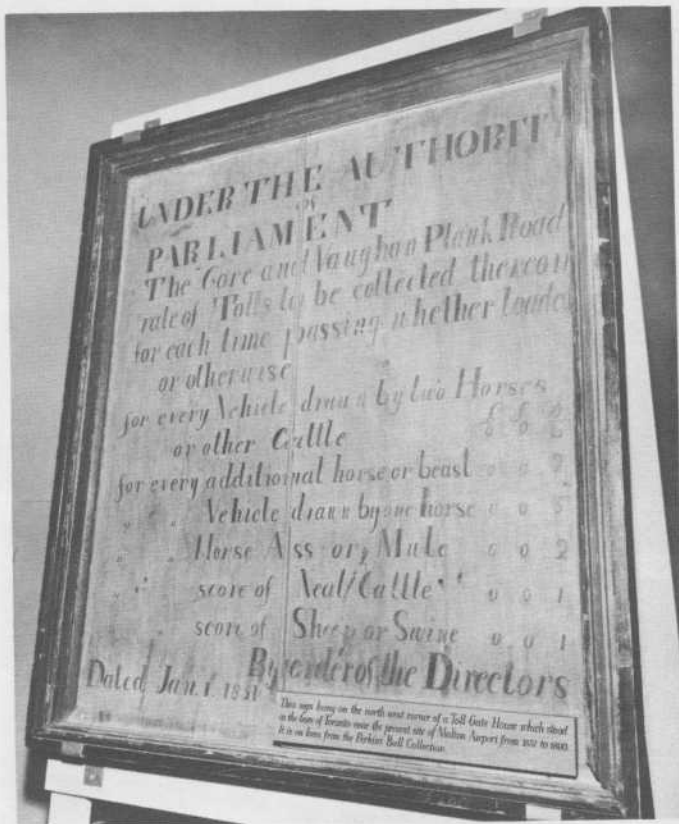 UNDER THE AUTHORIT
OF
PARLIAMENT
The Gore and Vaughan Plank Road
rate of Tolls to be collected thereon
for each time passing, whether loade
or otherwise
for every Vehicle drawn by two Horses
or other Cattle
for every additional horse or beast 0 0 2
" " Vehicle drawn by one horse 0 0
" " Horse Ass or, Mule 0 0 2
" " score of Neat/Cattle " 0 0 1
" score of Sheep or Swine 0 0 1
By order of the Directors
Dated Jan. 1. 1851
This sign hung on the north west corner of a Toll Gate House which stood
in the Gore of Toronto near the present site of Malton Airport from 1851 to
It is on loan from the Perkins Bull Collection